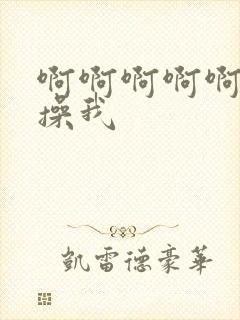 啊啊啊啊啊
操我
凯雷德豪華